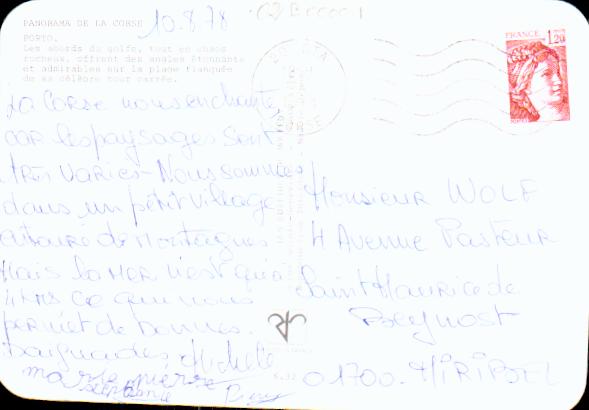 PANORAMA DE LA CORSE
10.8.78
PORTO.
Les abords du golfe, tout en chaos
rocheux, offrent des angles étonnants
et admirables sur la plage flanquée
de sa célèbre tour carrée.
FRANCE
1,20
La Corse nous enchante,
car les paysages sont
très variés - Nous sommes
dans un petit village
entouré de Montagnes
Mais la Mer n'est qu'à
4 kms ce qui nous
permet de bonnes
baignades. Michèle
marie pierre
Monsieur WOLF
4 Avenue Pasteur
Saint Maurice de
Beynost
01700. MIRIBEL